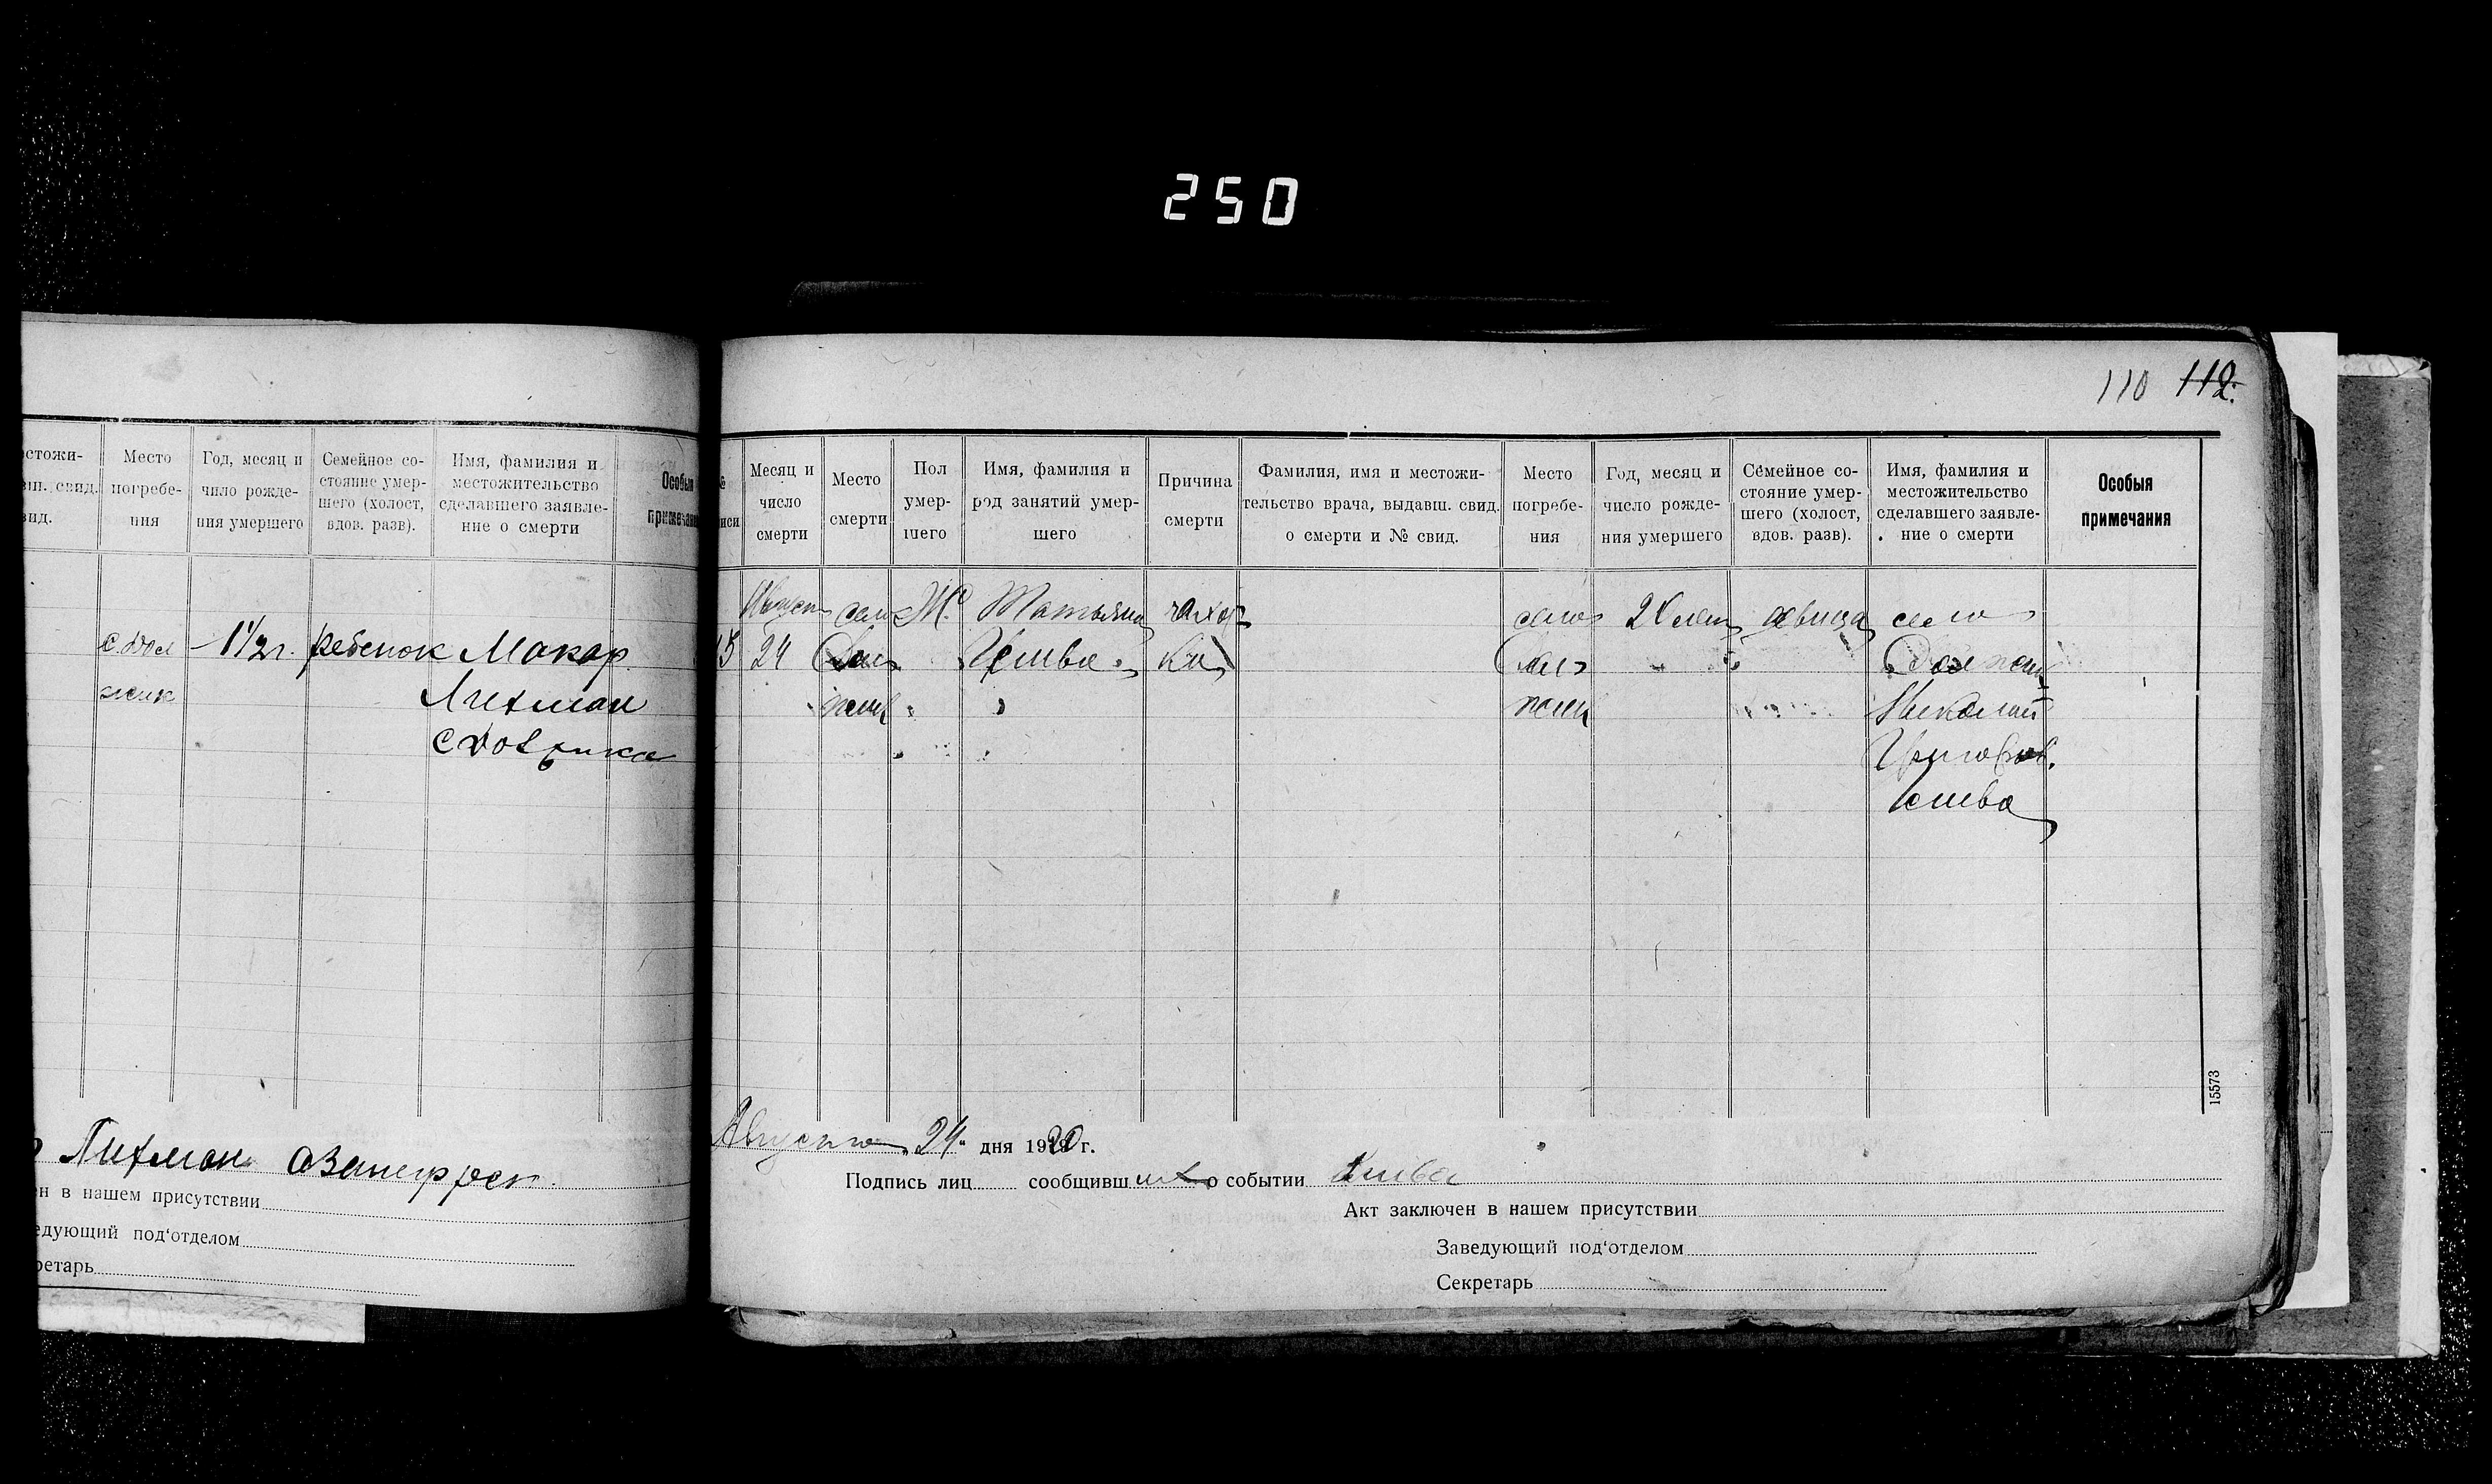 250
110 112.
естожи-
вш. свид.
вид.
Место
погребе-
ния
Год, месяц и
чило рожде-
ния умершего
Семейное со-
стояние умер-
шего (холост,
вдов. разв).
Имя, фамилия и
местожительство
сделавшего заявле-
ние о смерти
Особыя
примечани
с. Дол
жик
1 1/2 г.
ребенок
Макар
Лихман
с
Лихман
ен в нашем присутствии
едующий под'отделом
ретарь
№
иси
Месяц и
число
смерти
Место
смерти
Пол
умер-
шего
Имя, фамилия и
род занятий умер-
шего
Причина
смерти
Фамилия, имя и местожи-
тельство врача, выдавш. свид.
о смерти и № свид.
Место
погребе-
ния
Год, месяц и
число рожде-
ния умершего
Семейное со-
стояние умер-
шего (холост,
вдов. разв).
Имя, фамилия и
местожительство
сделавшего заявле-
ние о смерти
Особыя
примечания
15
24
село
Дол
жик
Ж.
Татьяна
чахот
ка
село
Дол
жик
девица
село
Должик
Николай
15573
Августа 24 дня 1920 г.
Подпись лиц сообщивш их о событии
Акт заключен в нашем присутствии
Заведующий под'отделом
Секретарь